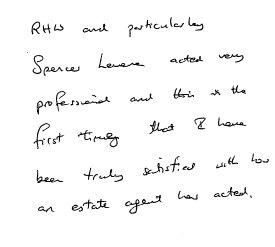 RHW and particularley
Spencer acted very
professional and this is the
first that I have
been truly satisfied with how
an estate agent has acted.